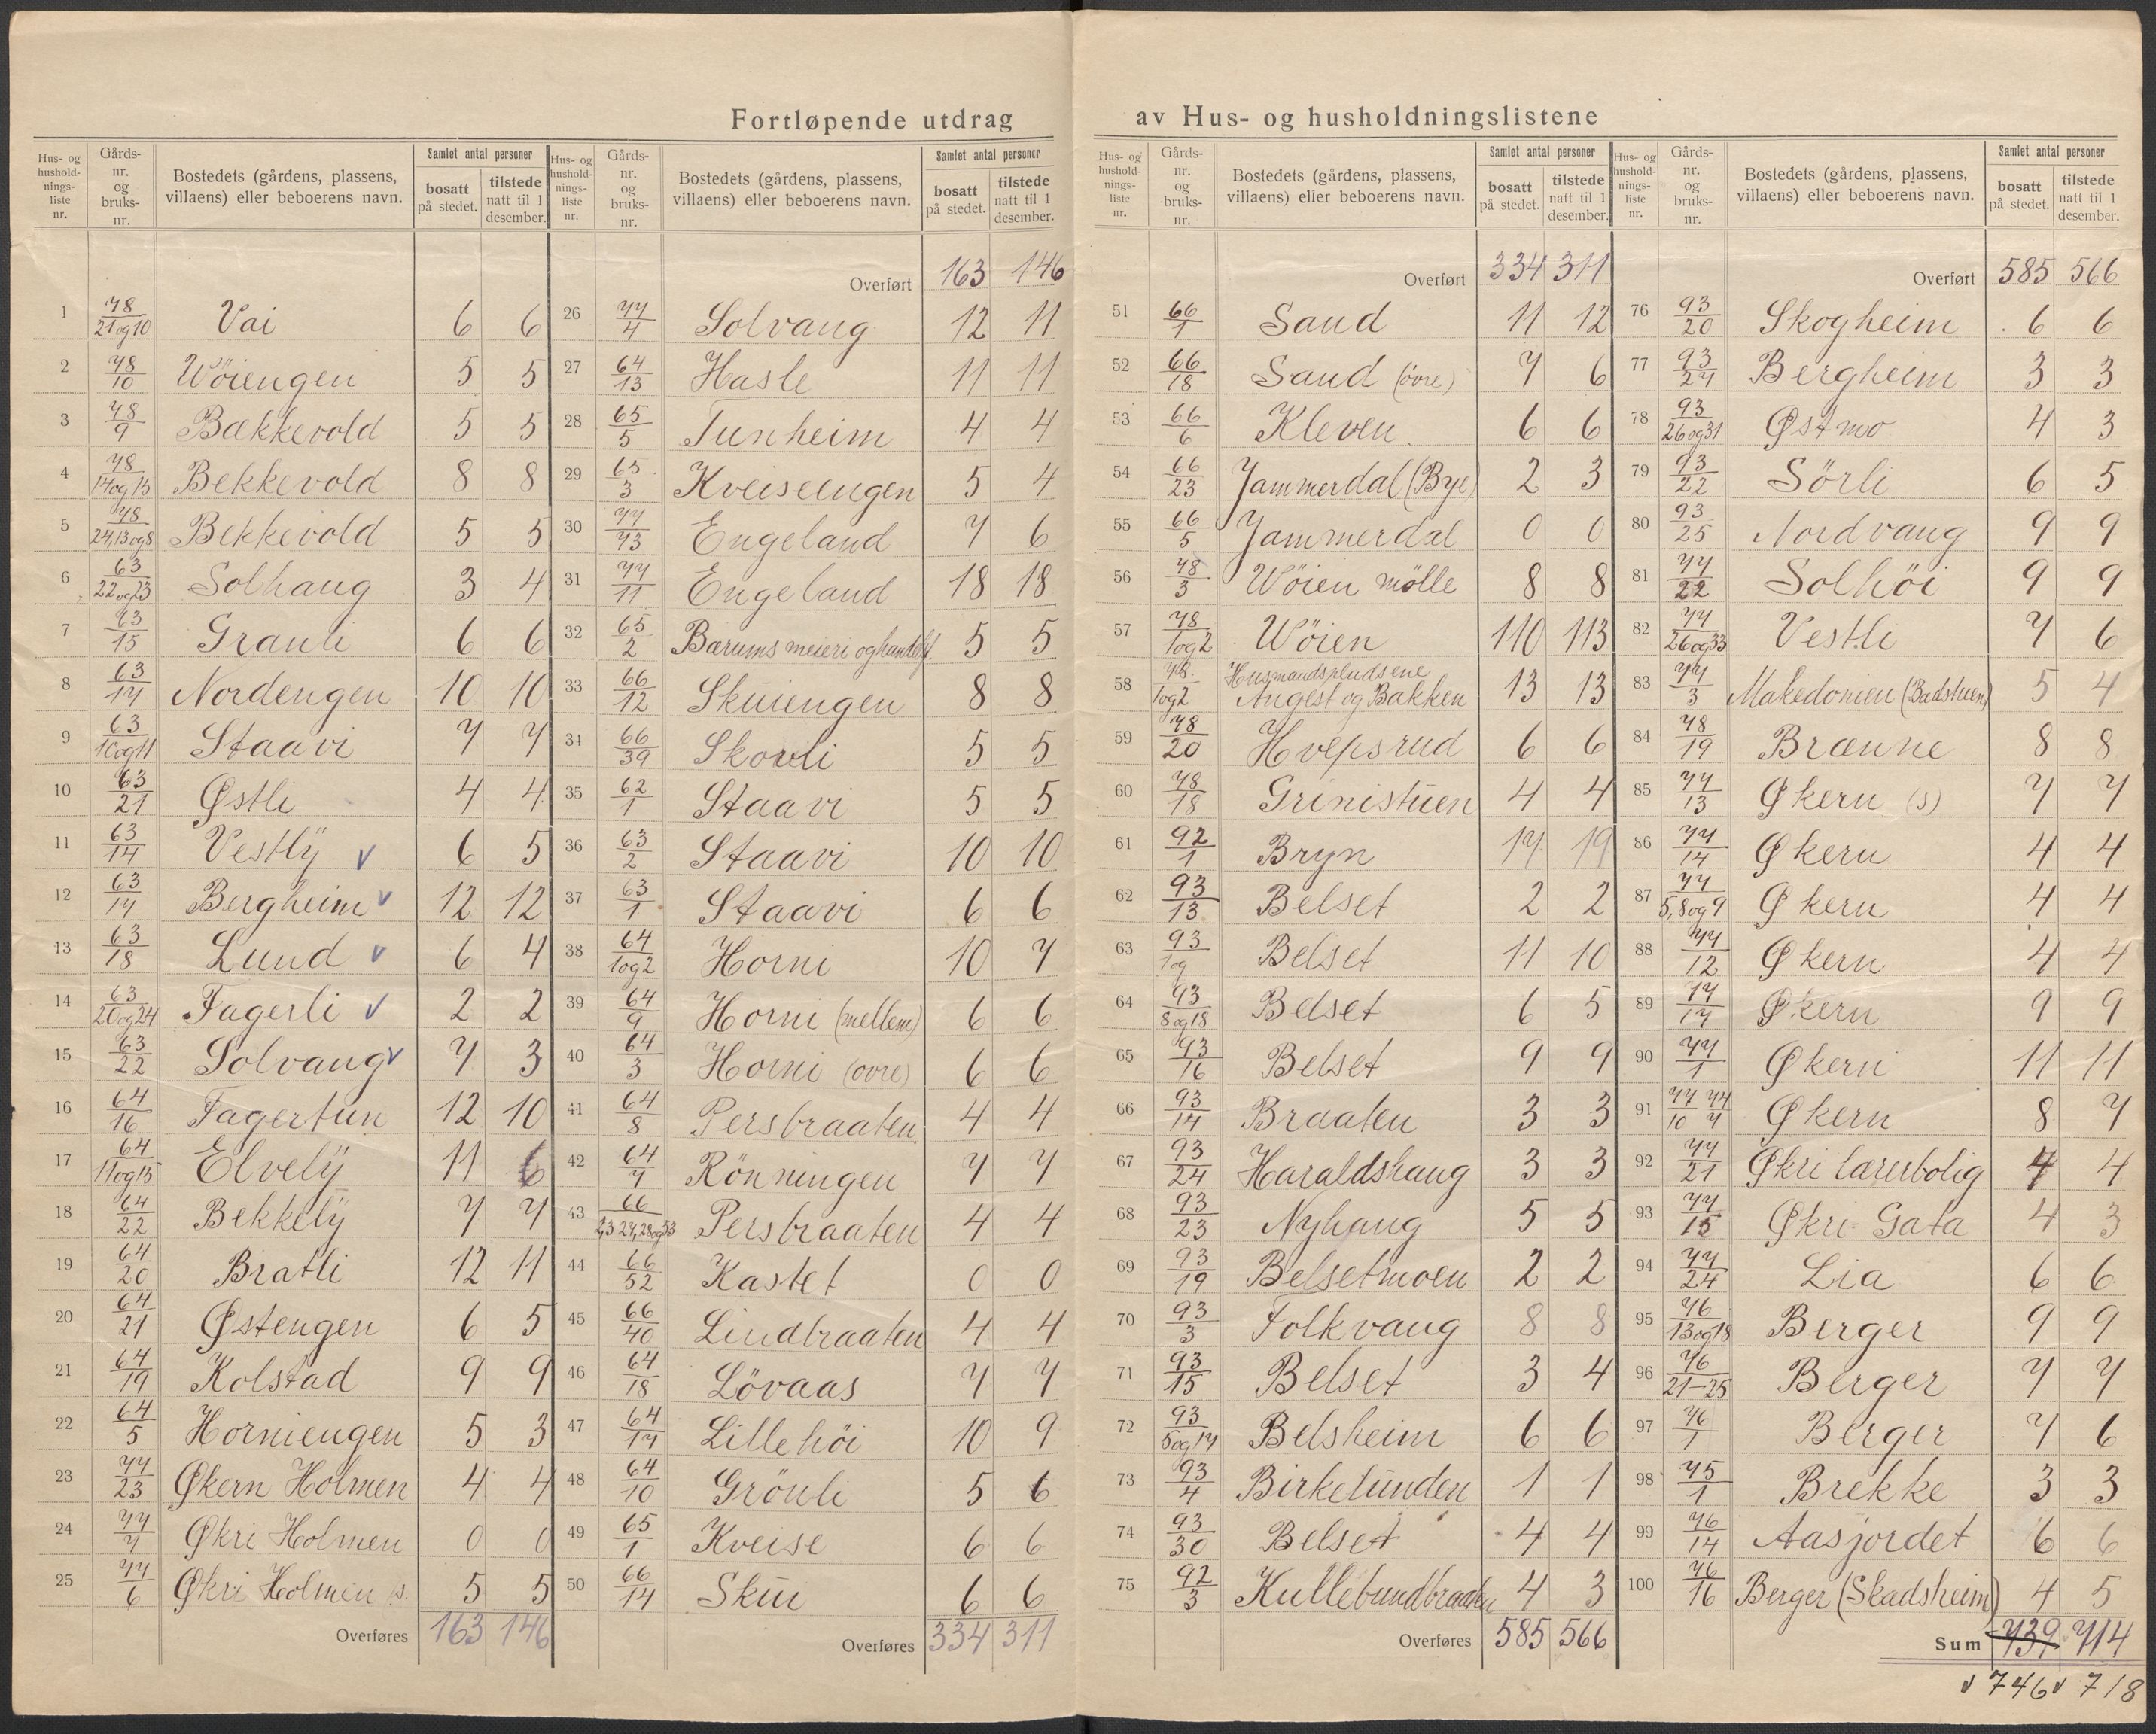 Fortløpende utdrag av Hus- og husholdningslistene
Hus- og husholdningsliste nr. | Gårdsnr. og bruksnr. | Bostedets (gårdens, plassens, villaens) eller beboerens navn. | Samlet antal personer: bosatt på stedet. | tilstede natt til 1 desember.
1 78/21og10 Vai 6 6
2 78/10 Wöiengen 5 5
3 78/9 Bækkevold 5 5
4 78/14og15 Bekkevold 8 8
5 78/24,13og8 Bekkevold 5 5
6 63/22og23 Solhaug 3 4
7 63/15 Granli 6 6
8 63/17 Nordengen 10 10
9 63/10og11 Staavi 7 7
10 63/21 Østli 4 4
11 63/14 Vestlÿ v 6 5
12 63/17 Bergheim v 12 12
13 63/18 Lund v 6 4
14 63/20og24 Fagerli v 2 2
15 63/22 Solvang v 7 3
16 64/16 Fagertun 12 10
17 64/11og15 Elvelÿ 11 6
18 64/22 Bekkelÿ 7 7
19 64/20 Bratli 12 11
20 64/21 Østengen 6 5
21 64/19 Kolstad 9 9
22 64/5 Horniengen 5 3
23 77/23 Økern Holmen 4 4
24 77/7 Økri Holmen 0 0
25 77/6 Økri Holmen s. 5 5
Overføres 163 146
Hus- og husholdningsliste nr. | Gårdsnr. og bruksnr. | Bostedets (gårdens, plassens, villaens) eller beboerens navn. | Samlet antal personer: bosatt på stedet. | tilstede natt til 1 desember.
Overført 163 146
26 77/4 Solvang 12 11
27 64/13 Hasle 11 11
28 65/5 Tunheim 4 4
29 65/3 Kveiseengen 5 4
30 77/73 Engeland 7 6
31 77/11 Engeland 18 18
32 65/2 Bærums meieri og handelsf. 5 5
33 66/12 Skuiengen 8 8
34 66/39 Skovli 5 5
35 62/1 Staavi 5 5
36 63/2 Staavi 10 10
37 63/1 Staavi 6 6
38 64/1og2 Horni 10 7
39 64/9 Horni (mellem) 6 6
40 64/3 Horni (övre) 6 6
41 64/8 Persbraaten 4 4
42 64/7 Rönningen 7 7
43 66/2,3 27,28og53 Persbraaten 4 4
44 66/52 Kastet 0 0
45 66/40 Lindbraaten 4 4
46 64/18 Lövaas 7 7
47 64/17 Lillehöi 10 9
48 64/10 Grönli 5 6
49 65/1 Kveise 6 6
50 66/14 Skui 6 6
Overføres 334 311
Hus- og husholdningsliste nr. | Gårdsnr. og bruksnr. | Bostedets (gårdens, plassens, villaens) eller beboerens navn. | Samlet antal personer: bosatt på stedet. | tilstede natt til 1 desember.
Overført 334 311
51 66/1 Sand 11 12
52 66/18 Sand (övre) 7 6
53 66/6 Kleven 6 6
54 66/23 Jammerdal (Bye) 2 3
55 66/5 Jammerdal 0 0
56 78/3 Wöien mölle 8 8
57 78/1og2 Wöien 110 113
58 78/1og2 Husmandspladsene Angest og Bakken 13 13
59 78/20 Hvepsrud 6 6
60 78/18 Grinistuen 4 4
61 92/1 Bryn 17 19
62 93/13 Belset 2 2
63 93/1og Belset 11 10
64 93/8og18 Belset 6 5
65 93/16 Belset 9 9
66 93/14 Braaten 3 3
67 93/24 Haraldshaug 3 3
68 93/23 Nyhaug 5 5
69 93/19 Belsetmoen 2 2
70 93/3 Folkvang 8 8
71 93/15 Belset 3 4
72 93/5og17 Belsheim 6 6
73 93/4 Birkelunden 1 1
74 93/30 Belset 4 4
75 92/3 Kullebundbraaten 4 3
Overføres 585 566
Hus- og husholdningsliste nr. | Gårdsnr. og bruksnr. | Bostedets (gårdens, plassens, villaens) eller beboerens navn. | Samlet antal personer: bosatt på stedet. | tilstede natt til 1 desember.
Overført 585 566
76 93/20 Skogheim 6 6
77 93/27 Bergheim 3 3
78 93/26og31 Østmo 4 3
79 93/22 Sörli 6 5
80 93/25 Nordvang 9 9
81 77/22 Solhöi 9 9
82 77/26og33 Vestli 7 6
83 77/3 Makedonien (Badstuen) 5 4
84 78/19 Brænne 8 8
85 77/13 Økern (s) 7 7
86 77/14 Økern 4 4
87 77/5,8og9 Økern 4 4
88 77/12 Økern 4 4
89 77/17 Økern 9 9
90 77/1 Økern 11 11
91 77/10 77/7 Økern 8 7
92 77/21 Økri lærerbolig 4 4
93 77/15 Økri-Gata 4 3
94 77/24 Lia 6 6
95 76/13og18 Berger 9 9
96 76/21-25 Berger 7 7
97 76/1 Berger 7 6
98 75/1 Brekke 3 3
99 76/14 Aasjordet 6 6
100 76/16 Berger (Skadsheim) 4 5
Sum 739 714
v 746 v 718